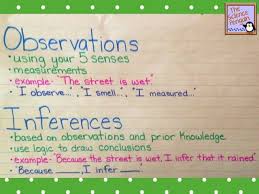 The
Science
Penguin
Observations
• using your 5 senses
• measurements
• example- "The street is wet."
• "I observe...", "I smell...", "I measured..."
Inferences
• based on observations and prior knowledge
• use logic to draw conclusions
• example- "Because the street is wet, I infer that it rained"
• "Because ____, I infer ____."